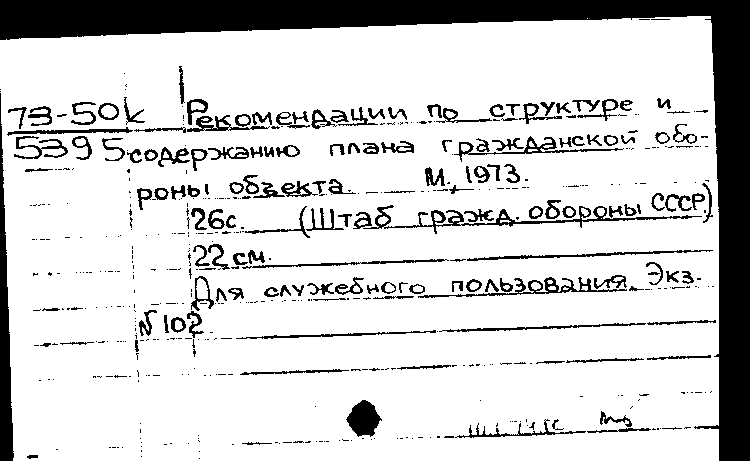 73-50k Рекомендации по структуре и
5395 содержанию плана гражданской обо-
роны объекта. М., 1973.
26с. (Штаб гражд. обороны СССР)
22 см.
Для служебного пользования. Экз.
№ 102